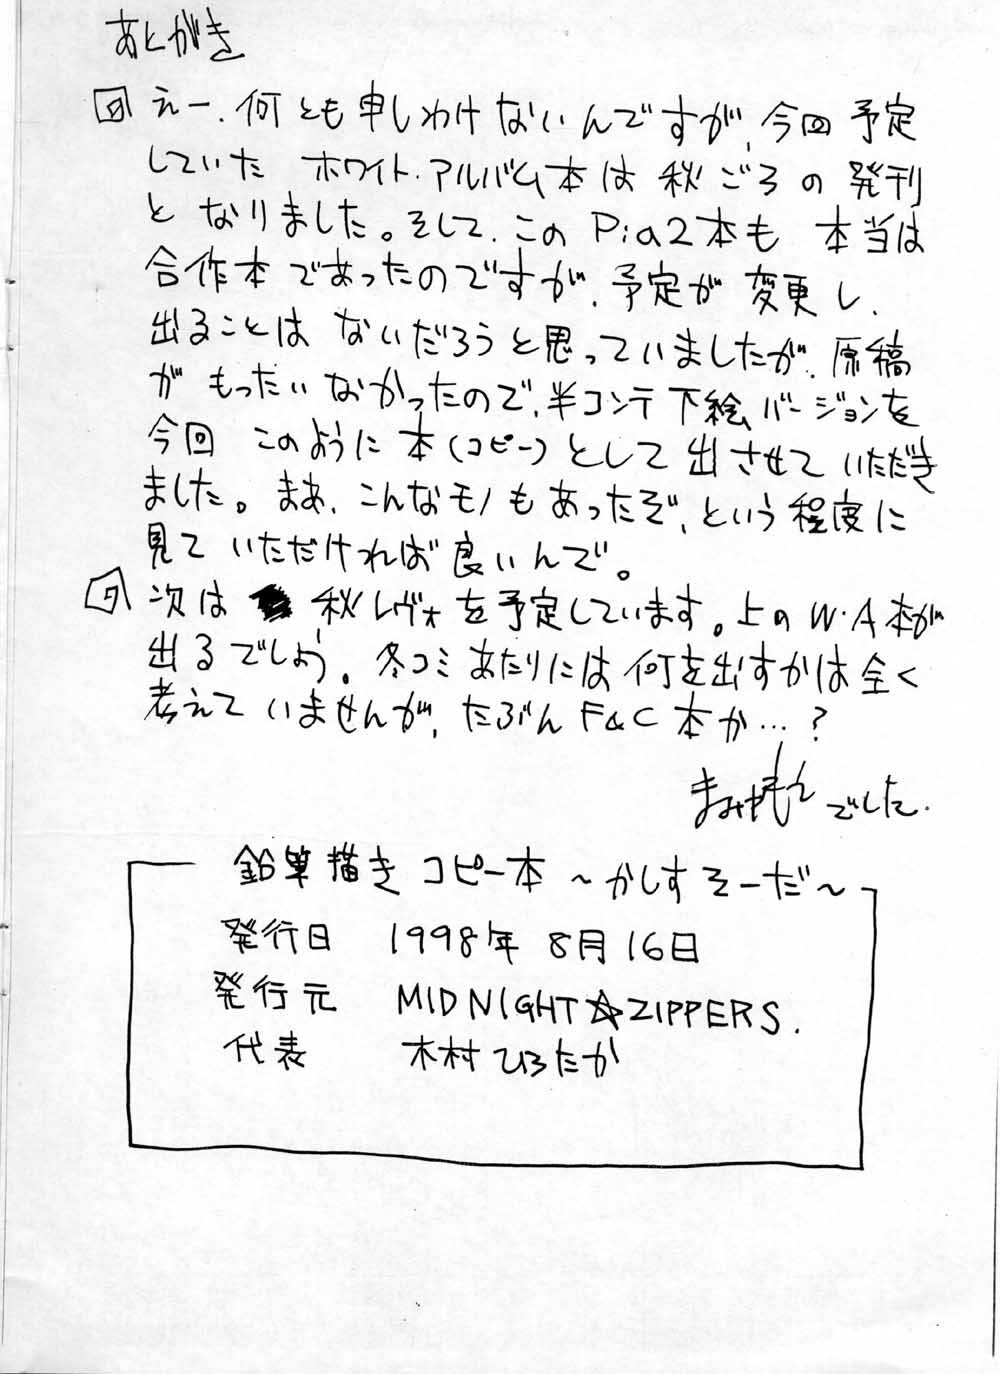 あとがき
えー、何とも申しわけないんですが、今回予定
していた ホワイト・アルバム本は 秋ごろの発刊
となりました。そして、このPia2本も 本当は
合作本であったのですが、予定が変更し、
出ることは ないだろうと思っていましたが、原稿
がもったいなかったので、半コンテ下絵バージョンを
今回 このように本(コピー)として出させていただき
ました。まあ、こんなモノもあったぞ、という程度に
見ていただければ良いんで。
次は 秋レヴォを予定しています。上のW・A本が
出るでしょう。冬コミあたりには何を出すかは全く
考えていませんが、たぶんF&C本か…?
まみやもん でした.
鉛筆描きコピー本 ~かしすそーだ~
発行日 1998年8月16日
発行元 MIDNIGHT☆ZIPPERS.
代表 木村ひろたか